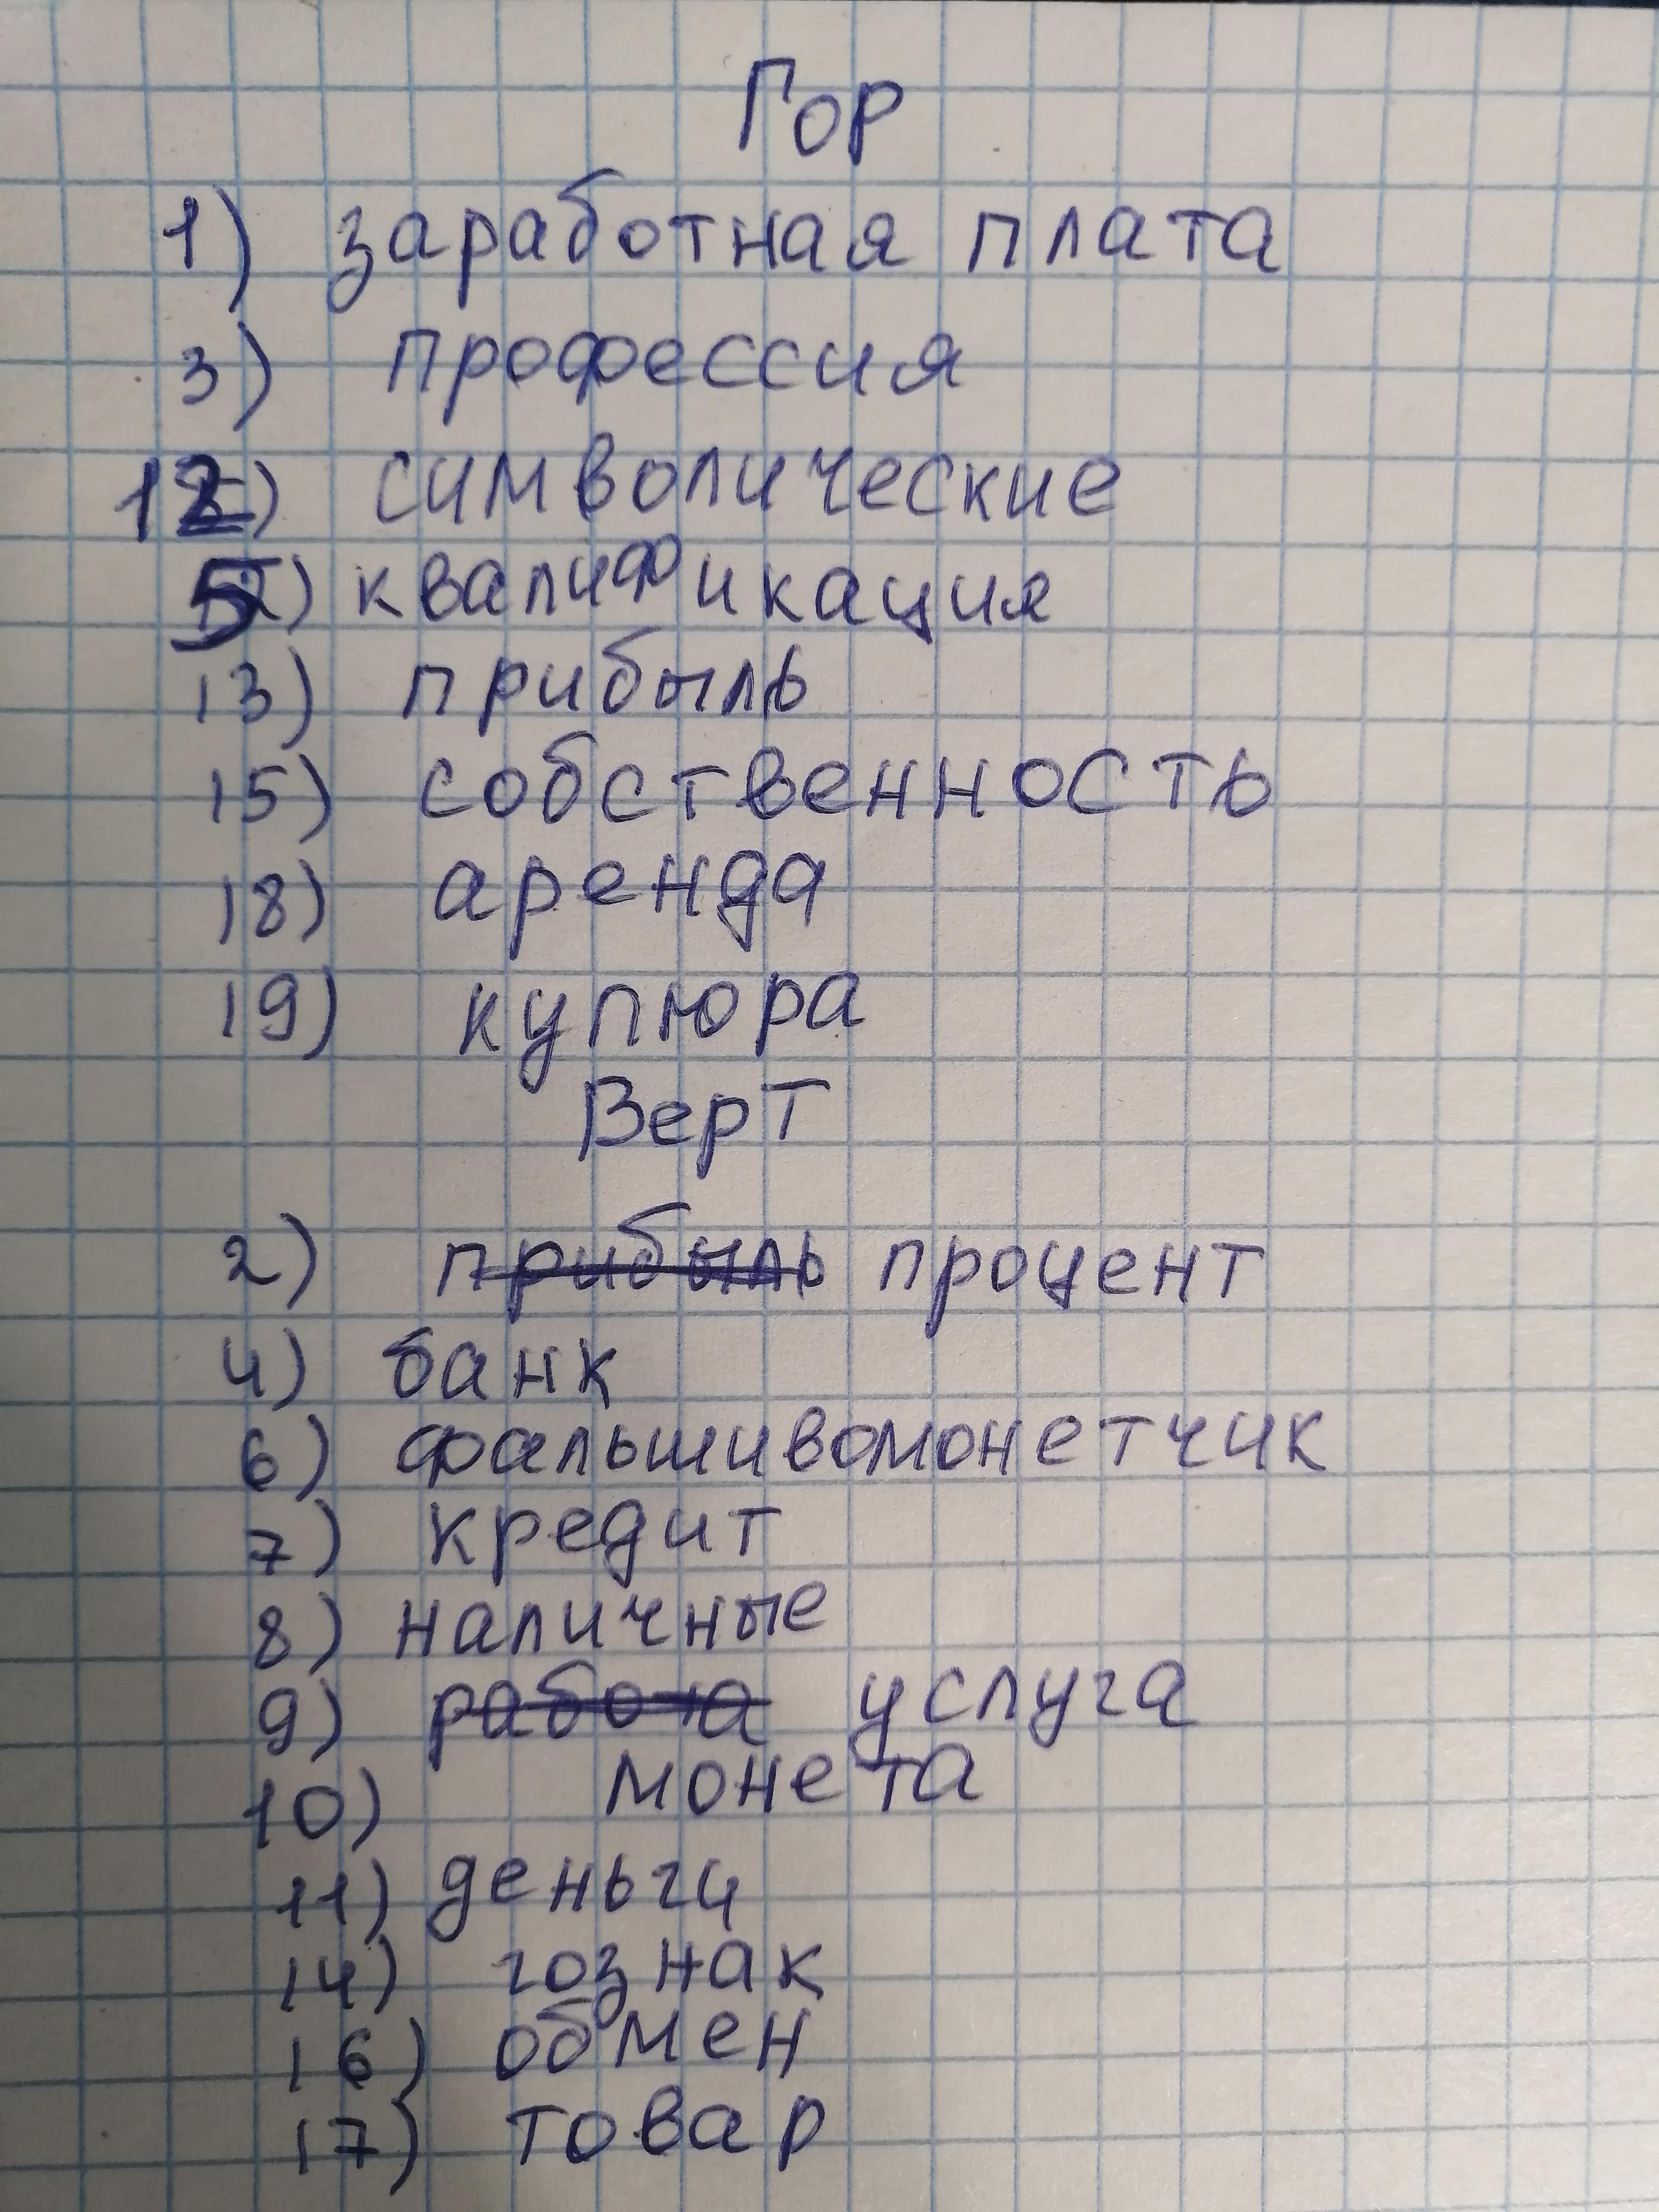 Гор
1) заработная плата
3) профессия
12) символические
5) квалификация
13) прибыль
15) собственность
18) аренда
19) купюра
Верт
2) прибыль процент
4) банк
6) фальшивомонетчик
7) кредит
8) наличные
9) работа услуга
10) монета
11) деньги
14) гознак
16) обмен
17) товар